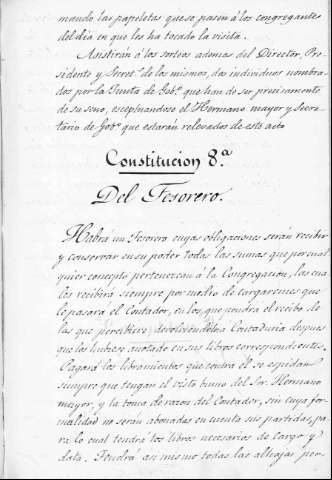 mando las papeletas que se pasen á los congregantes
del dia en que les ha tocado la visita.
Asistirán á los sorteos ademas del Director, Pre-
sidente y Secret.º de los mismos, dos individuos nombra-
dos por la Junta de Gob.º que han de ser precisamente
de su seno, esceptuandose el Hermano mayor y Secre-
tario de Gob.º que estarán relevados de este acto
Constitucion 8.ª
Del Tesorero.
Habrá un Tesorero cuyas obligaciones serán recibir
y conservar en su poder todas las sumas que por cual
quier concepto pertenezcan á la Congregacion, las cua
les recibirá siempre por medio de cargaremes que
le pasará el Contador, en los que pondrá el recibo de
las que percibiere devolviendolos Contaduria despues
que los hubiere anotado en sus libros correspondientes.
Pagará los libramientos que contra él se espidan
siempre que tengan el visto bueno del Sor. Hermano
mayor, y la toma de razon del Contador, sin cuya for
malidad no serán abonadas en cuenta sus partidas, pa
ra lo cual tendrá los libros necesarios de cargo y
data. Tendrá asi mismo todas las alhajas per-